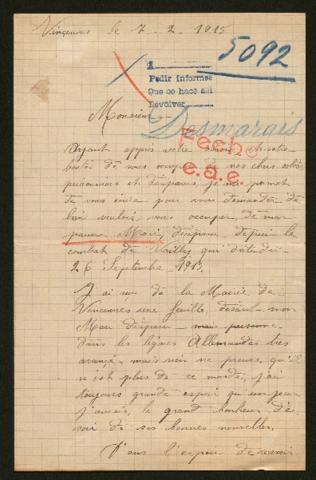 Vincennes le 7-2-1915
5092
A
Pedir informes
Que se hace así
Devolver
Monsieur
Desmarais
Hecho
e.a.e.
Ayant appris votre
bonté de vous occuper de nos chers
prisonniers et disparus, je me permet
de vous écrire pour vous demander de
bien vouloir vous occuper de mon
pauvre Mari, disparu depuis le
combat de Vailly qui date du
26 Septembre 1915.
J'ai eu de la Mairie de
Vincennes une feuille disant mon
Mari disparu mais personne
dans les lignes Allemandes très
avancé mais rien ne prouve, qu'il
n'est plus de ce monde, j'ai
toujours grand espoir qu'un jour
j'aurais, le grand bonheur d'a-
voir de ses bonnes nouvelles.
Dans l'espoir de